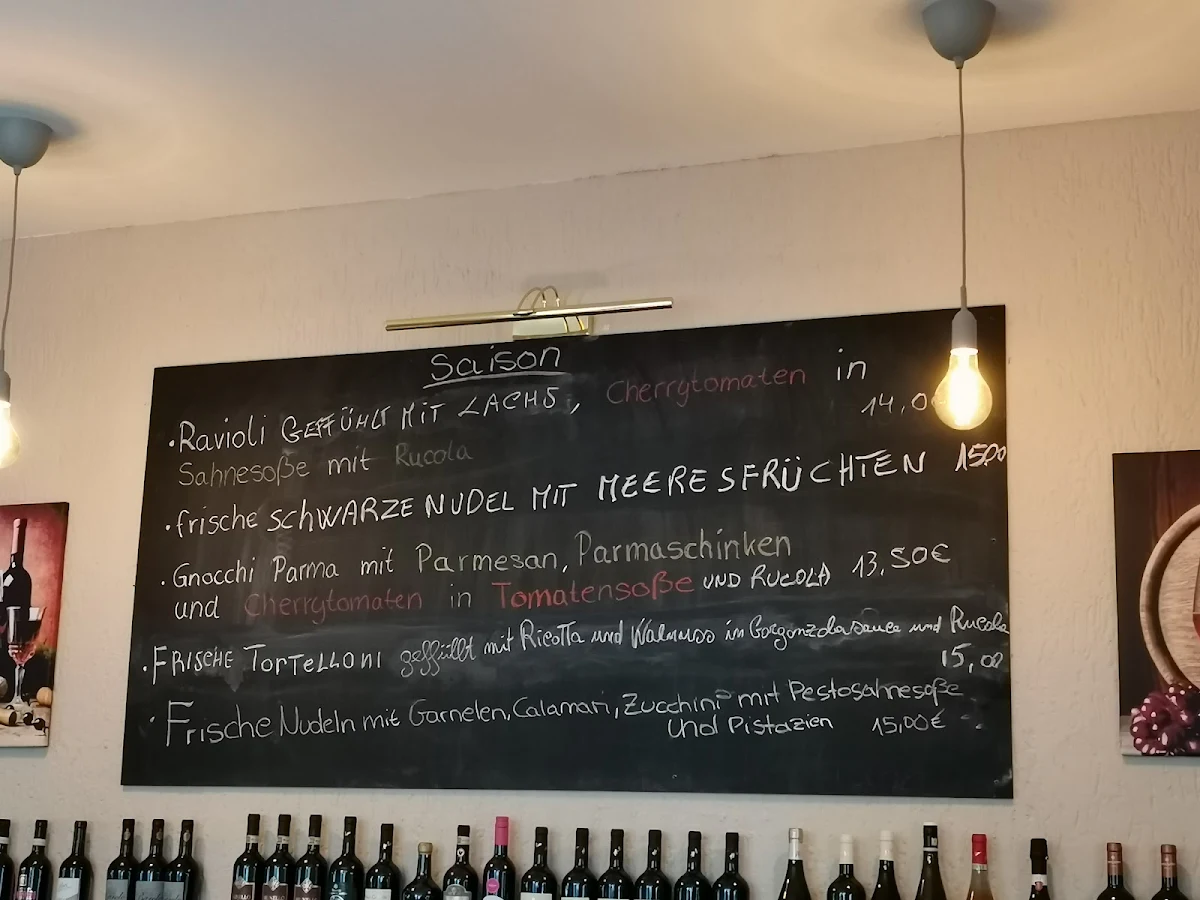 Saison
·Ravioli GEFFÜHLT MIT LACHS, Cherrytomaten in
14,0
Sahnesoße mit Rucola
·frische SCHWARZE NUDEL MIT MEERESFRÜCHTEN 15,00
·Gnocchi Parma mit Parmesan, Parmaschinken
und Cherrytomaten in Tomatensoße UND RUCOLA 13,50€
·FRISCHE TORTELLONI geffüllt mit Ricotta und Walnuss in Gorgonzolasauce und Rucola
15,00
·Frische Nudeln mit Garnelen, Calamari, Zucchini mit Pestosahnesoße
und Pistazien 15,00€